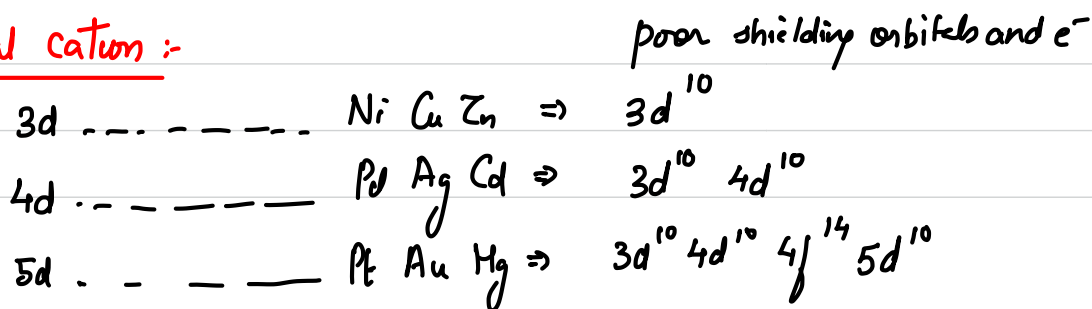 cation :-
poor shielding orbitels and e⁻
3d ---------- Ni Cu Zn ⇒ 3d¹⁰
4d ---------- Pd Ag Cd ⇒ 3d¹⁰ 4d¹⁰
5d ---------- Pt Au Hg ⇒ 3d¹⁰ 4d¹⁰ 4f¹⁴ 5d¹⁰